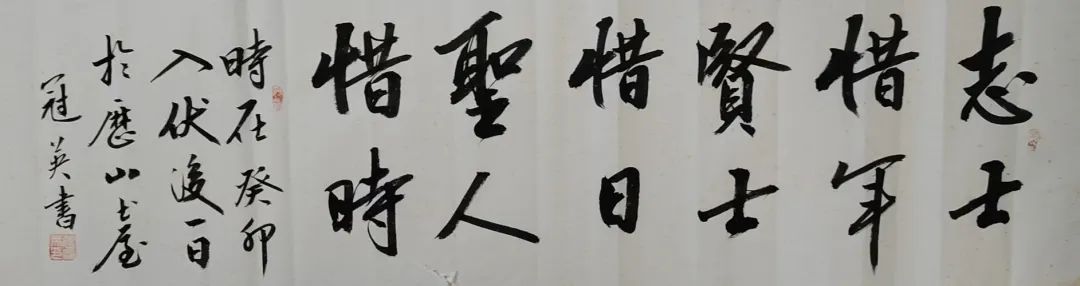 志士
惜年
賢士
惜日
聖人
惜時
時在癸卯
入伏後一日
於歷山屋
冠英書